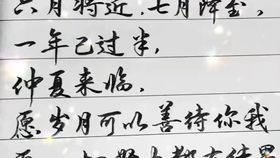 六月将近,七月降至,
一年已过半,
仲夏来临,
愿岁月可以善待你我